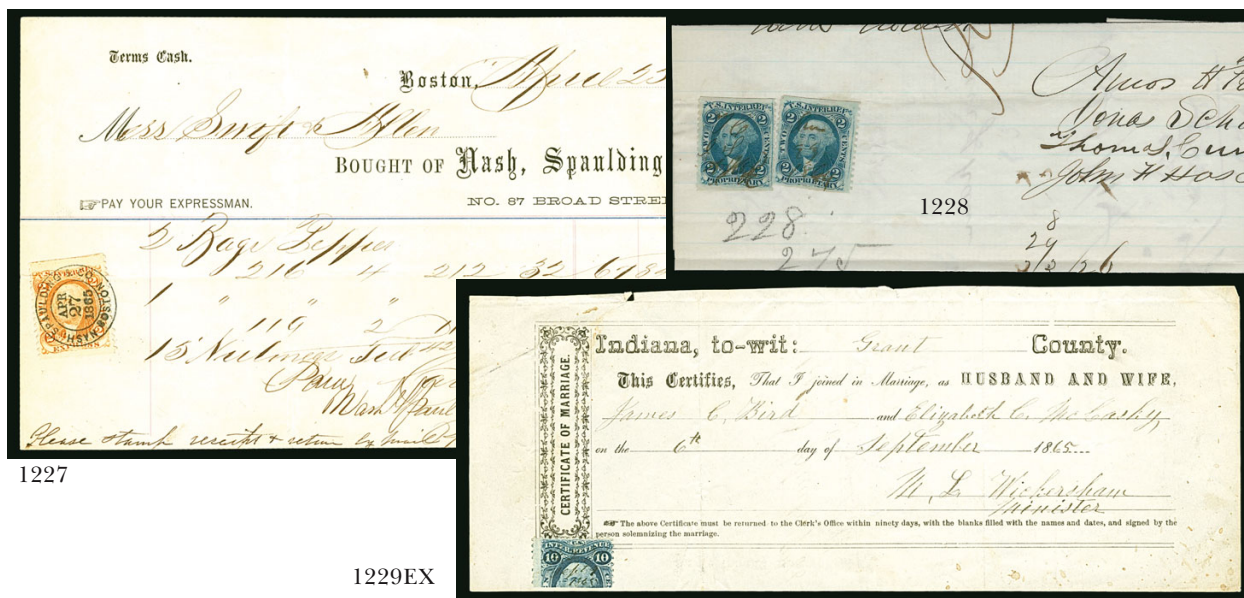 Terms Cash.
Boston, April 25
Mess Swift & Allen
BOUGHT OF Nash, Spaulding
☞PAY YOUR EXPRESSMAN.
NO. 87 BROAD STREE
2 Bags Pepper
216 4 212 32 678
1 " " "
119 2
15 Nutmegs
Nash Spaul
Please stamp receipt & return by mail
NASH SPAULDING & CO. BOSTON
APR
27
1865
EXPRESS
1227
U.S. INTER. REV.
2 2
TWO CENTS
2 2
PROPRIETARY
U.S. INTER. REV.
2 2
TWO CENTS
2 2
PROPRIETARY
Amos H
Jonas Scha
Thomas Cun
John H Hos
228
275
8
24
1228
CERTIFICATE OF MARRIAGE.
Indiana, to-wit: Grant County.
This Certifies, That I joined in Marriage, as HUSBAND AND WIFE,
James C. Bird and Elizabeth C. McCasky
on the 6th day of September 1865
M. L. Wickersham
Minister
☞ The above Certificate must be returned to the Clerk's Office within ninety days, with the blanks filled with the names and dates, and signed by the
person solemnizing the marriage.
U.S.
INTER. REVENUE
10 10
1229EX